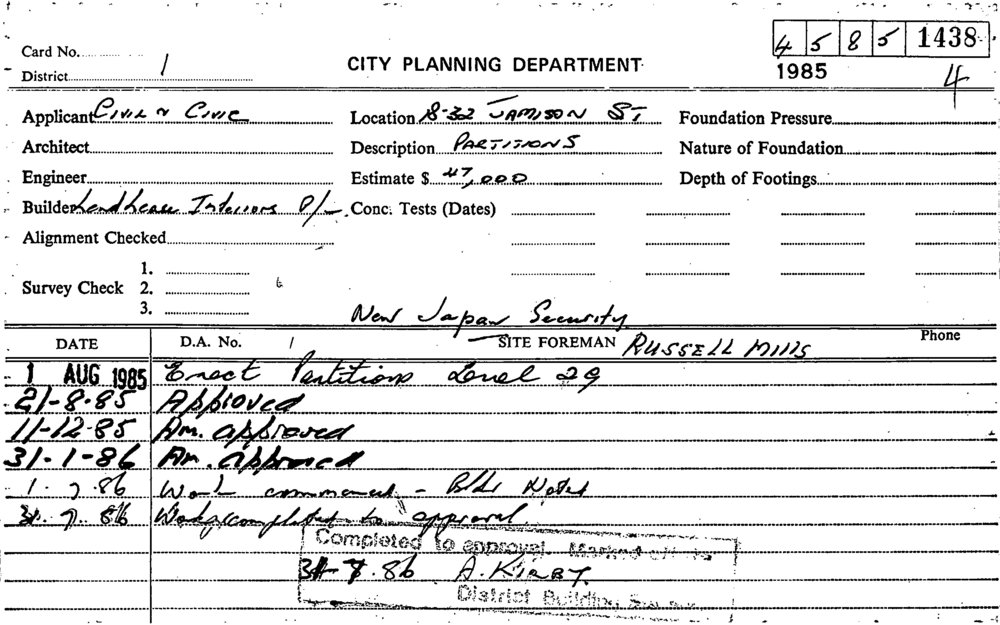 Card No.
4 5 8 5 1438
District 1
CITY PLANNING DEPARTMENT
1985 4
Applicant Civil & Civic Location 8-32 JAMISON ST Foundation Pressure
Architect Description PARTITIONS Nature of Foundation
Engineer Estimate $ 47,000 Depth of Footings
Builder Lend Lease Interiors P/L Conc. Tests (Dates)
Alignment Checked
1.
Survey Check 2.
3.
New Japan Security
DATE D.A. No. SITE FOREMAN RUSSELL MILLS Phone
1 AUG 1985 Erect Partitions Level 29
21-8-85 Approved
11-12-85 Am. approved
31-1-86 Am. approved
1.7.86 Work commenced - Bldr Noted
31.7.86 Work completed to approval.
Completed to approval. Marked off
31-7.86 A. KIRBY.
District Building